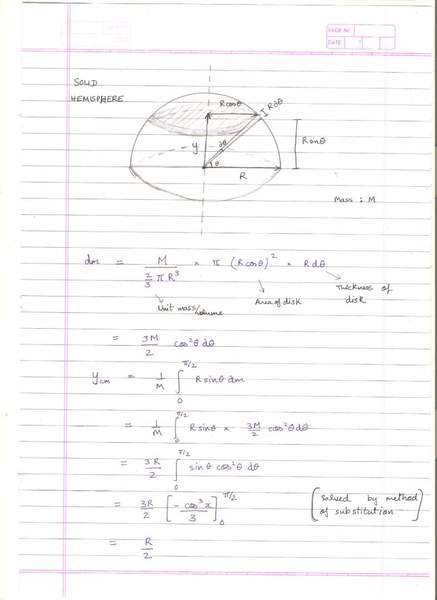 PAGE NO
DATE
SOLID
HEMISPHERE
Rcosθ
Rdθ
y
dθ
θ
R
Rsinθ
Mass : M
dm = M / (2/3 πR³) × π (Rcosθ)² × Rdθ
Unit mass/volume
Area of disk
Thickness of disk
= 3M/2 cos²θ dθ
y_cm = 1/M ∫₀^{π/2} Rsinθ dm
= 1/M ∫₀^{π/2} Rsinθ × 3M/2 cos²θdθ
= 3R/2 ∫₀^{π/2} sinθ cos²θ dθ
= 3R/2 [ -cos³x / 3 ]₀^{π/2}
[ solved by method of substitution ]
= R/2